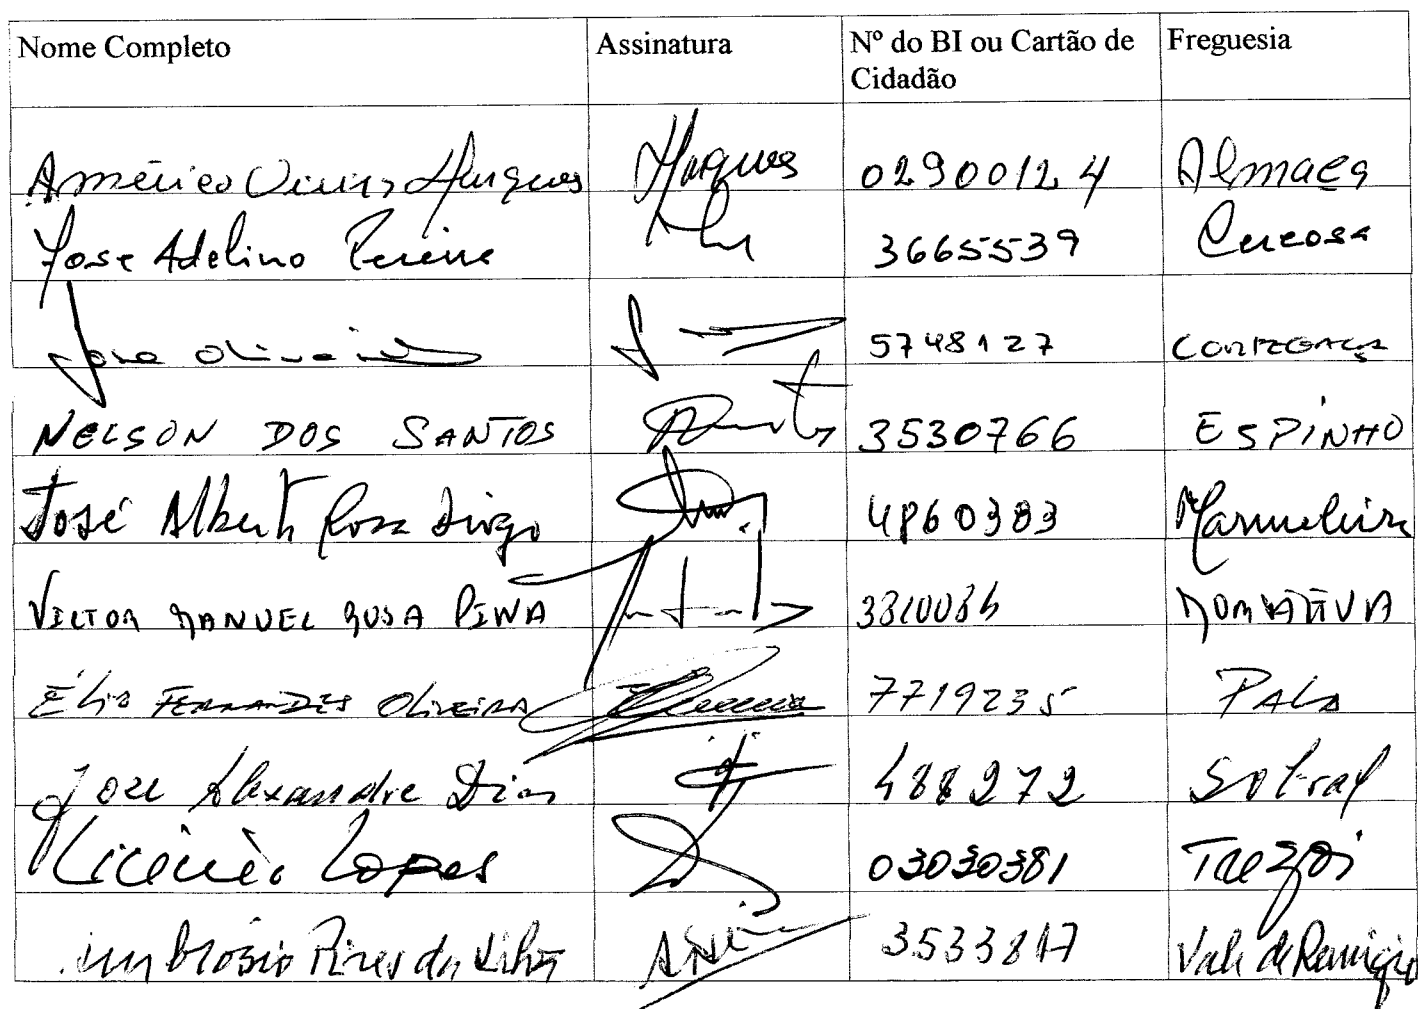 Nome Completo Assinatura Nº do BI ou Cartão de Cidadão Freguesia
Américo Marques Marques 02900124 Almaça
José Adelino Pereira 3665539 Cercosa
José Oliveira 5748127 CORTEGAÇA
NELSON DOS SANTOS 3530766 ESPINHO
José Alberto Rosa Diogo 4860383 Marmeleira
VICTOR MANUEL ROSA PINA
ÉLIO FERNANDES OLIVEIRA 7719235 PALA
José Alexandre Dias 488272 Sobral
Licínio Lopes 03030381 Trezoi
Ambrósio Pires da Silva Vale de Remígio